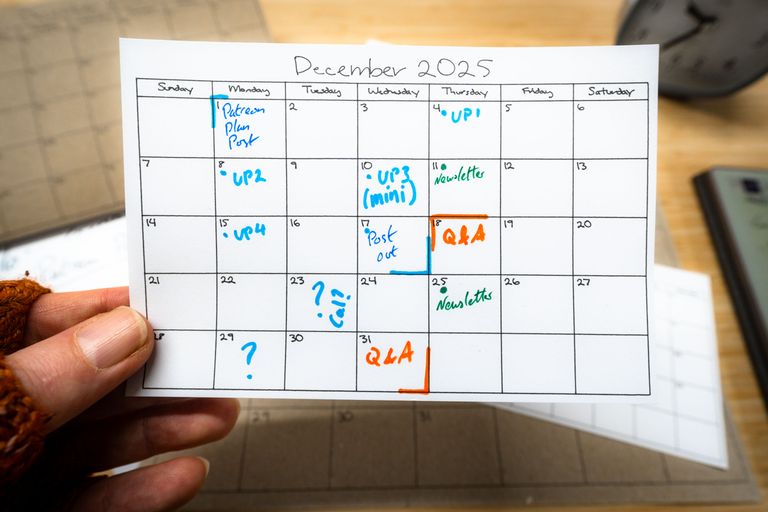 December 2025
Sunday Monday Tuesday Wednesday Thursday Friday Saturday
1 2 3 4 5 6
Patreon
Plan
Post
• UP1
7 8 9 10 11 12 13
• UP2
• UP3
(mini)
• Newsletter
14 15 16 17 18 19 20
• UP4
• Post
out
Q&A
21 22 23 24 25 26 27
?
Call?
• Newsletter
28 29 30 31
?
Q&A
29 30 31